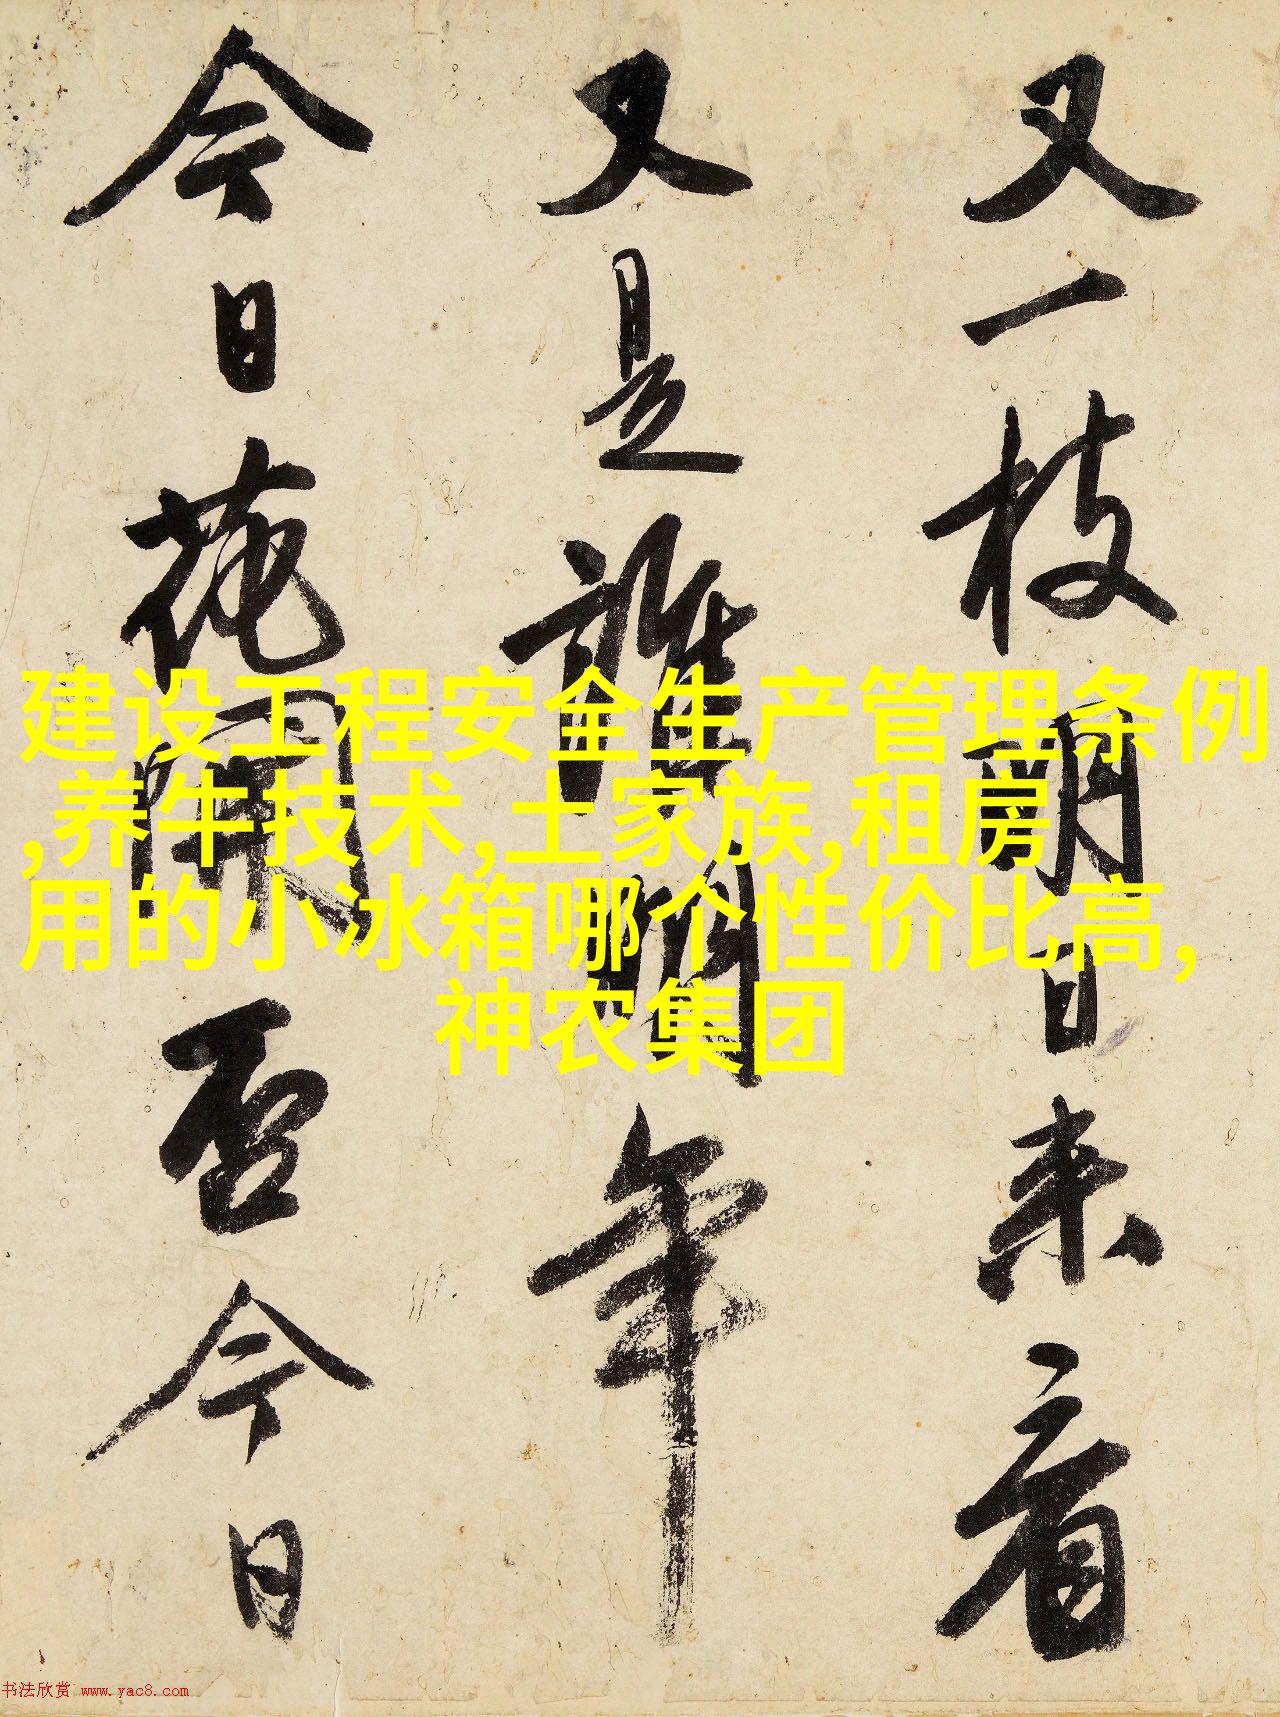 又一枝明日来看
又是谁開年
今日花開否今日
建设工程安全生产管理条例
,养牛技术,土家族,租房
用的小冰箱哪个性价比高,
神农集团
书法欣赏 www.yac8.com